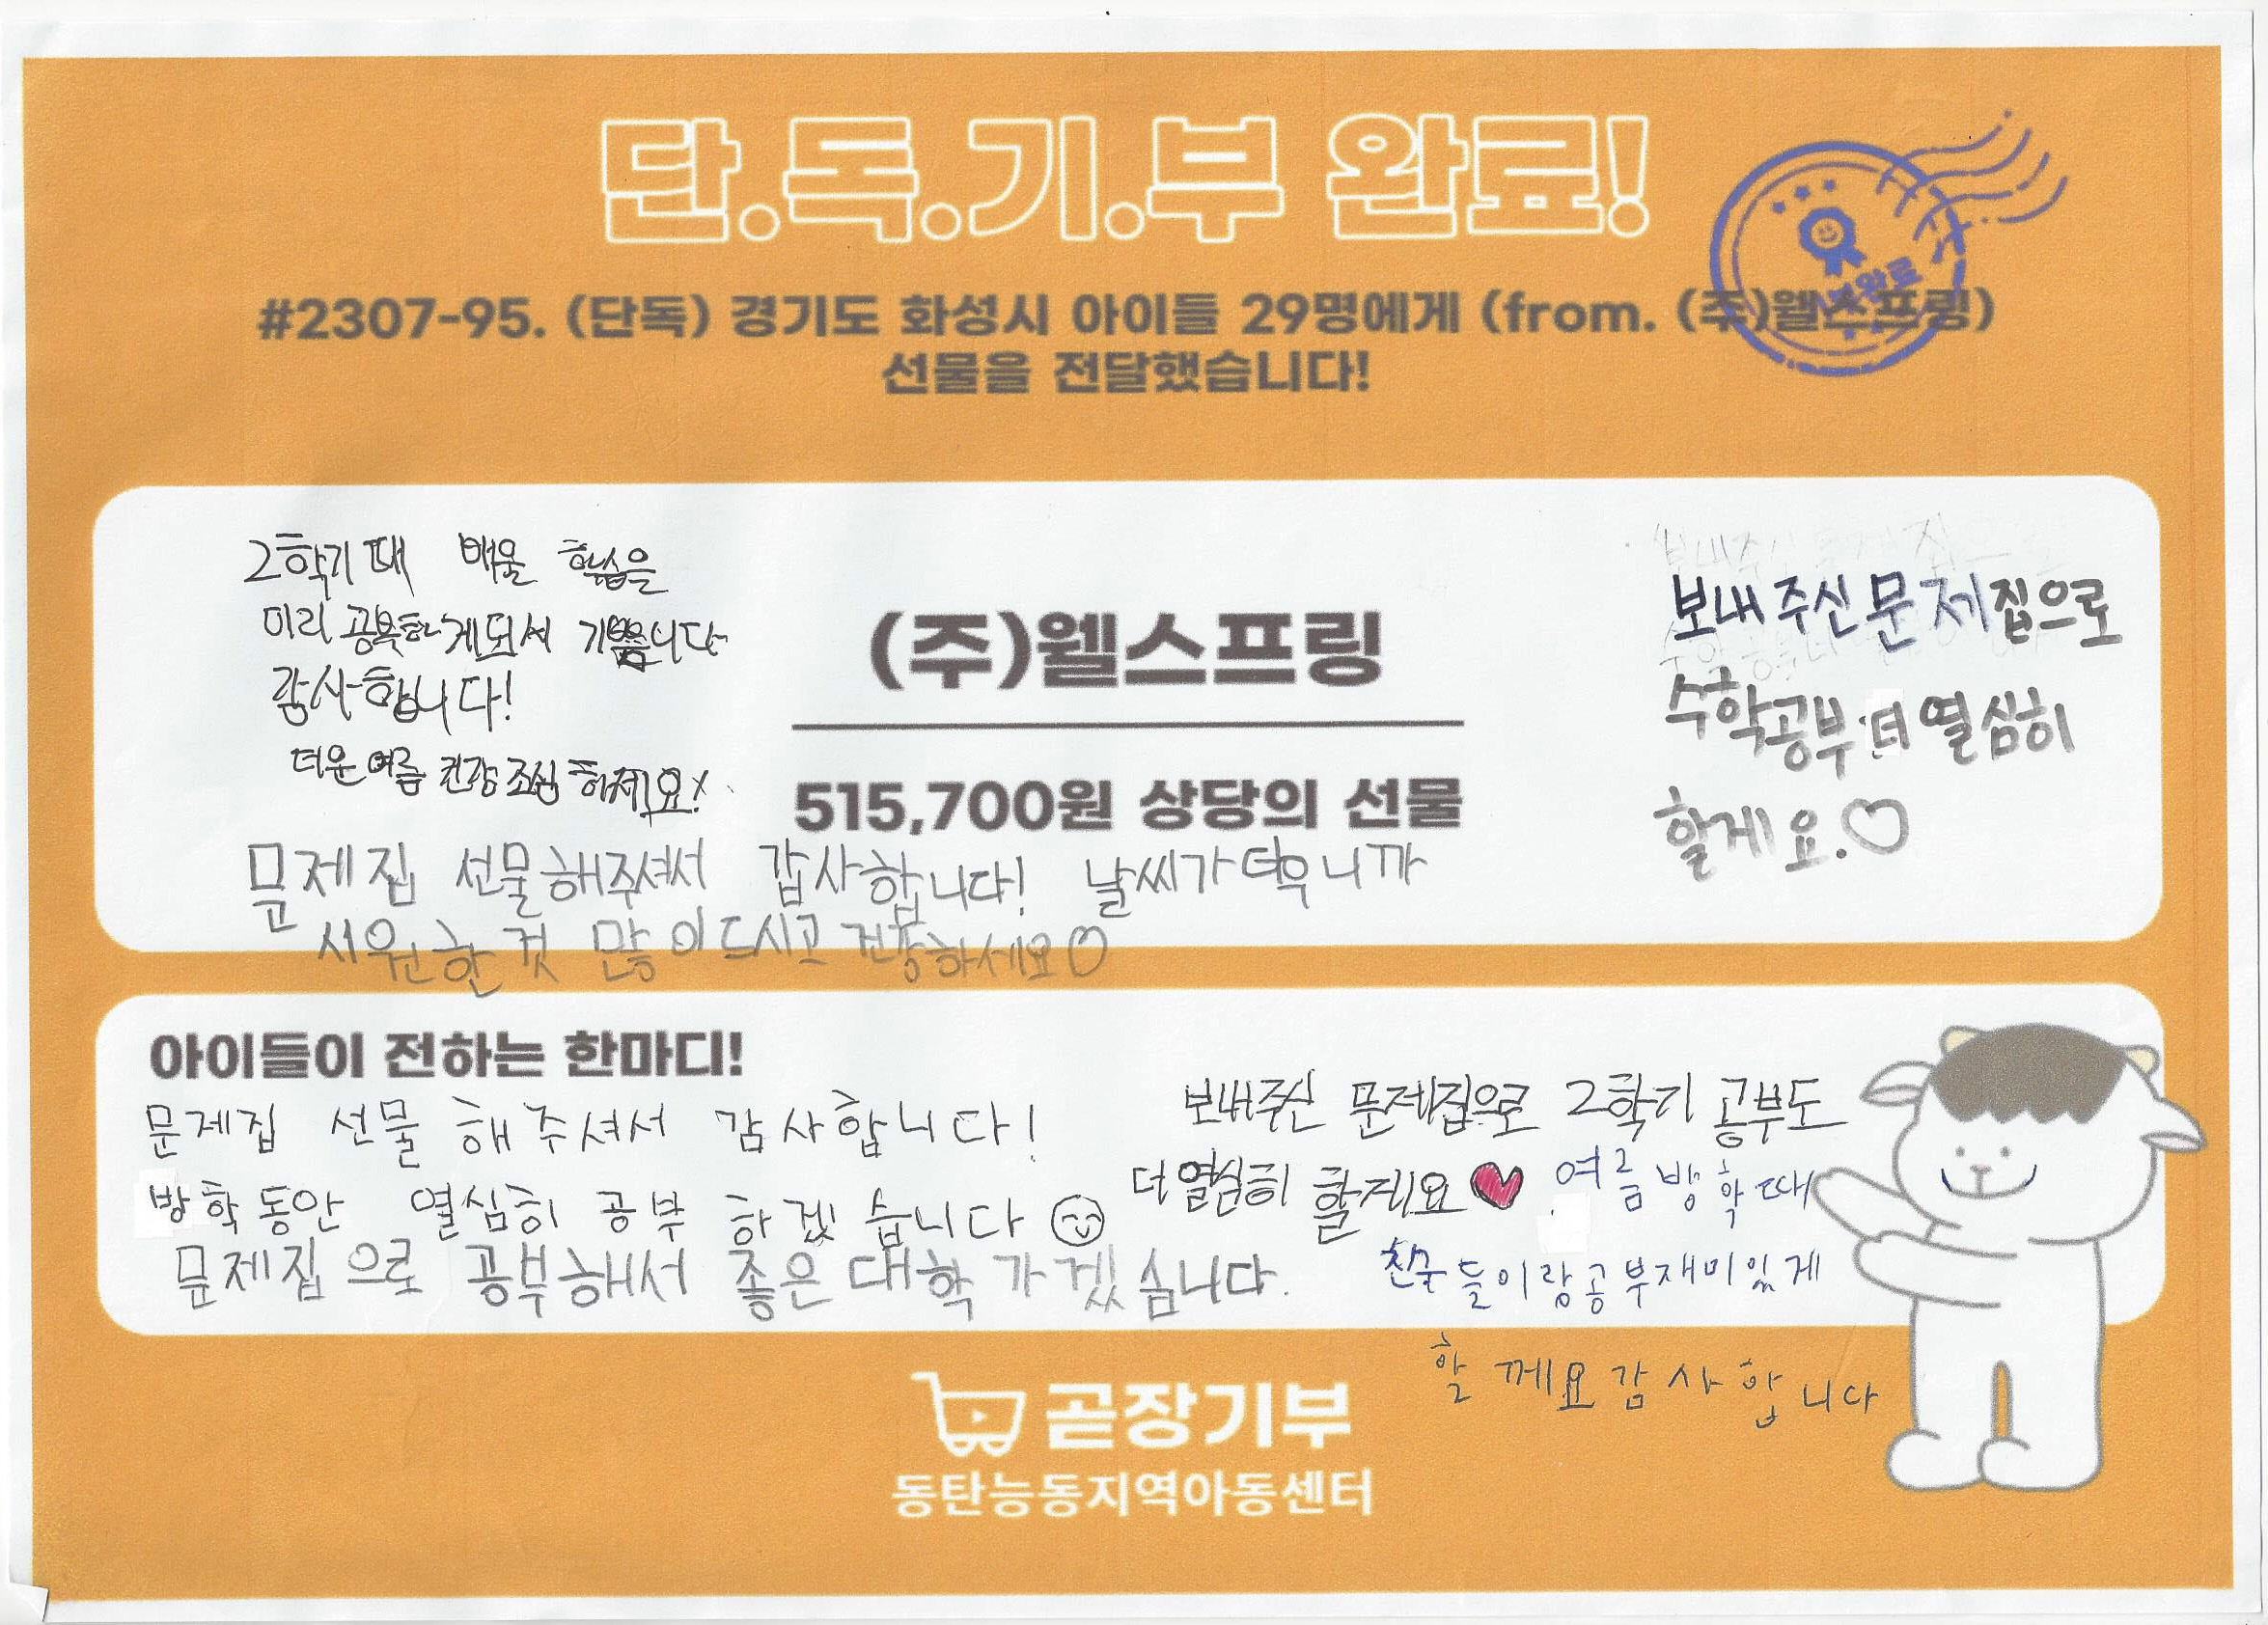 단.독.기.부 완료!
#2307-95. (단독) 경기도 화성시 아이들 29명에게 (from. (주)웰스프링)
선물을 전달했습니다!
2학기 때 배울 학습을
미리 공복하게되서 기쁩니다
감사합니다!
더운여름 건강조심하세요!
(주)웰스프링
515,700원 상당의 선물
보내주신문제집으로
수학공부 더 열심히
할게요.♡
문제집 선물해주셔서 감사합니다! 날씨가더우니까
시원한 것 많이드시고 건강하세요♡
아이들이 전하는 한마디!
문제집 선물 해주셔서 감사합니다!
방학동안 열심히 공부 하겠습니다
문제집으로 공부해서 좋은대학 가겠싐니다.
보내주신 문제집으로 2학기 공부도
더 열심히 할게요♥
여름방학때
친구들이랑공부재미있게
할께요감사합니다
곧장기부
동탄능동지역아동센터